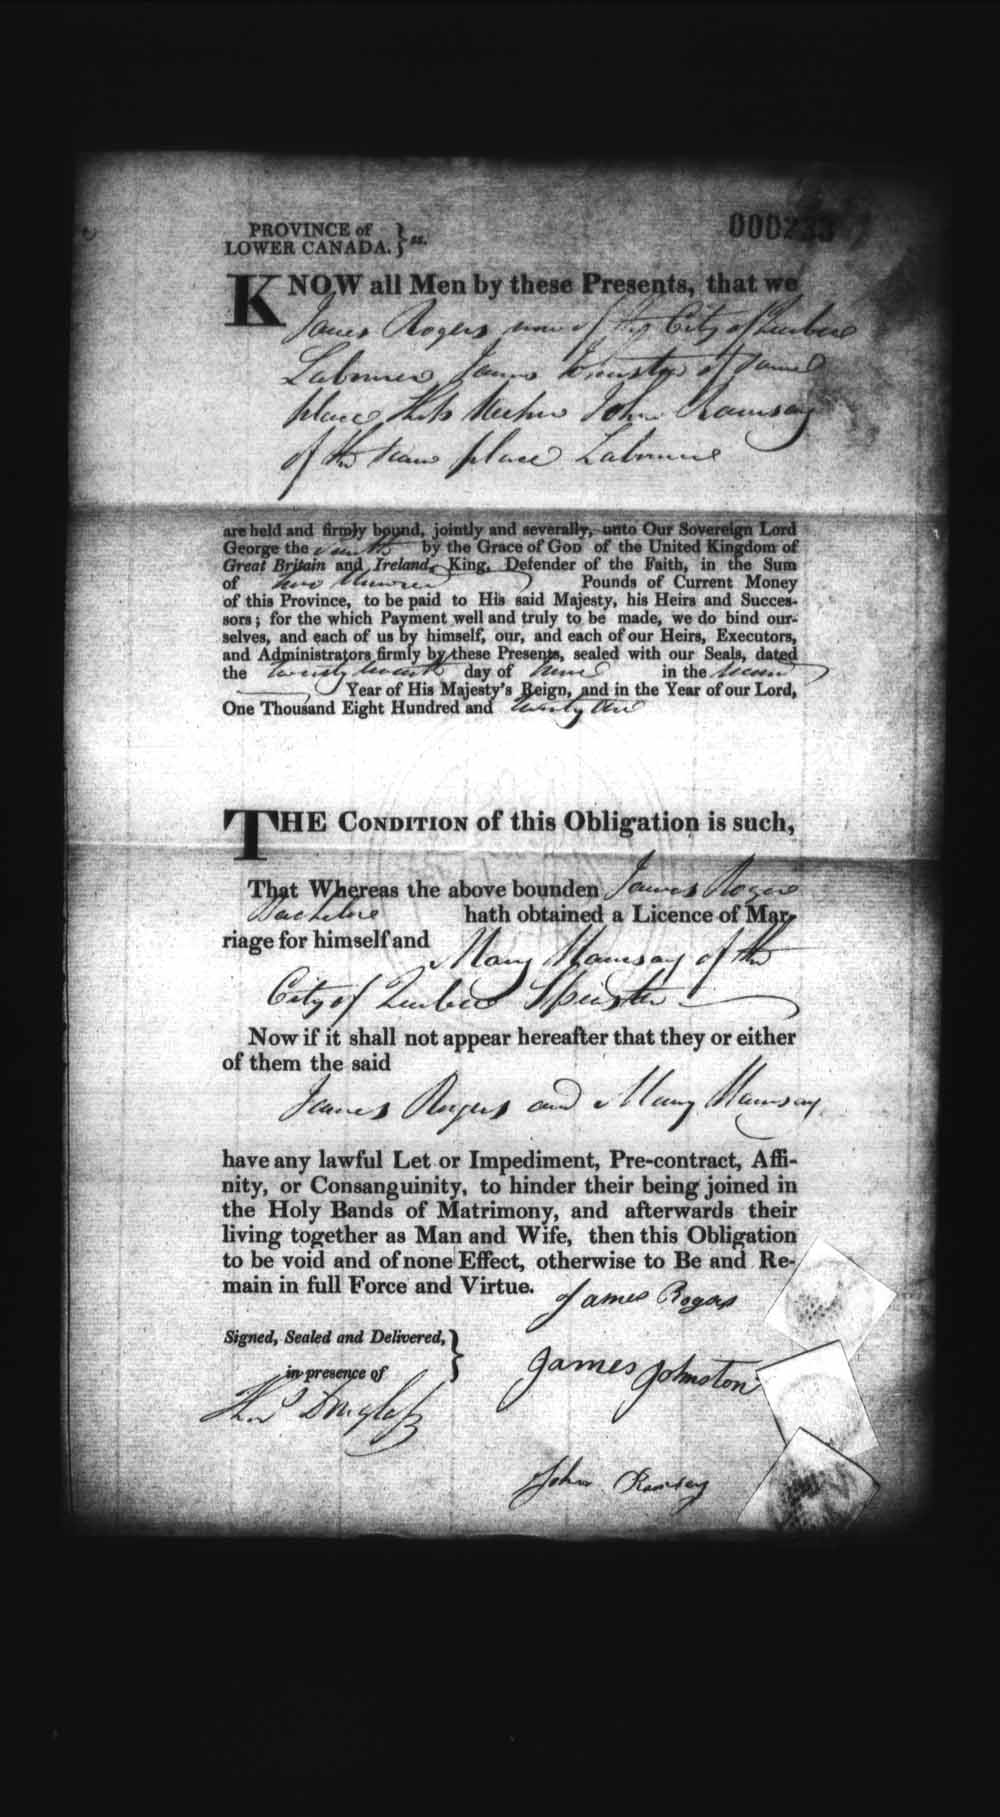 000233
PROVINCE of
LOWER CANADA. } ss.
KNOW all Men by these Presents, that we
James Rogers now of the City of Quebec
Labourer James Johnston of same
place John Ramsay
of the same place Labourer
are held and firmly bound, jointly and severally, unto Our Sovereign Lord
George the fourth by the Grace of GOD of the United Kingdom of
Great Britain and Ireland, King, Defender of the Faith, in the Sum
of two Hundred Pounds of Current Money
of this Province, to be paid to His said Majesty, his Heirs and Succes-
sors; for the which Payment well and truly to be made, we do bind our-
selves, and each of us by himself, our, and each of our Heirs, Executors,
and Administrators firmly by these Presents, sealed with our Seals, dated
the day of June in the second
Year of His Majesty's Reign, and in the Year of our Lord,
One Thousand Eight Hundred and twenty one
THE CONDITION of this Obligation is such,
That Whereas the above bounden James Rogers
Bachelor hath obtained a Licence of Mar-
riage for himself and Mary Ramsay of the
City of Quebec Spinster
Now if it shall not appear hereafter that they or either
of them the said
James Rogers and Mary Ramsay
have any lawful Let or Impediment, Pre-contract, Affi-
nity, or Consanguinity, to hinder their being joined in
the Holy Bands of Matrimony, and afterwards their
living together as Man and Wife, then this Obligation
to be void and of none Effect, otherwise to Be and Re-
main in full Force and Virtue.
James Rogers
Signed, Sealed and Delivered, }
in presence of
James Johnston
Thos Douglass
John Ramsey